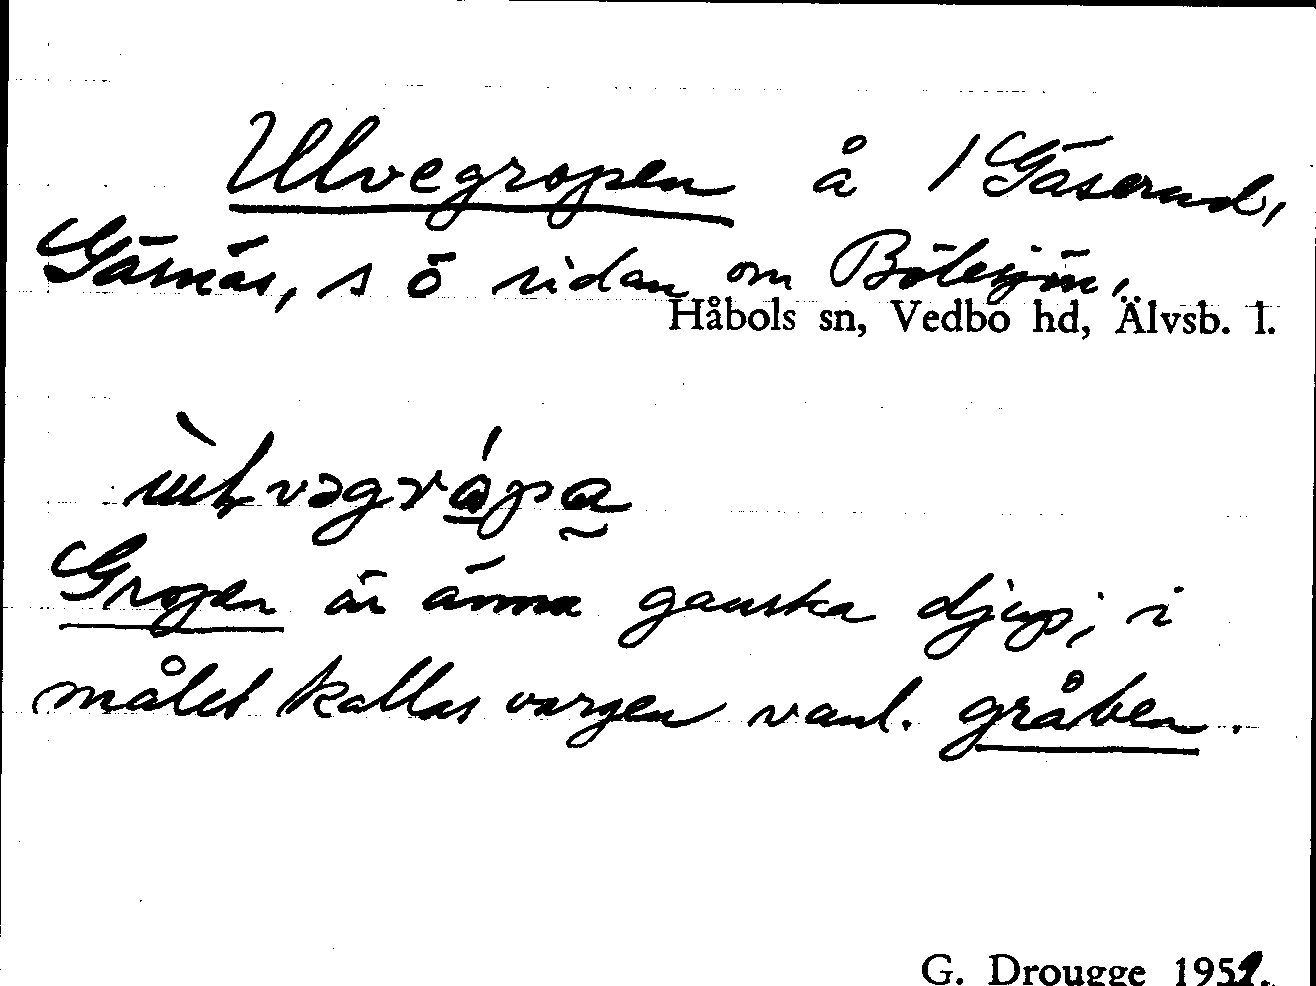 Ulvegropen å 1 Gäserud,
Gäsnäs, s ö sidan om Bölesjön,
Håbols sn, Vedbo hd, Älvsb. l.
Gropen är ännu ganska djup; i
målet kallas vargen vanl. gråben.
G. Drougge 195